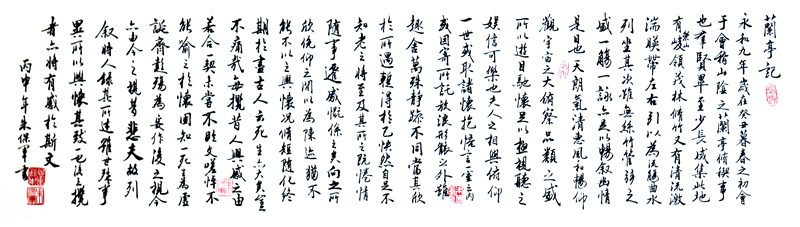 蘭亭記
永和九年歲在癸丑暮春之初會
于會稽山陰之蘭亭脩稧事
也羣賢畢至少長咸集此地
有峻領茂林脩竹又有清流激
湍暎帶左右引以為流觴曲水
列坐其次雖無絲竹管弦之
盛一觴一詠亦足以暢叙幽情
是日也天朗氣清惠風和暢仰
觀宇宙之大俯察品類之盛
所以遊目騁懷足以極視聽之
娛信可樂也夫人之相與俯仰
一世或取諸懷抱悟言一室之內
或因寄所託放浪形骸之外雖
趣舍萬殊靜躁不同當其欣
於所遇暫得於己快然自足不
知老之將至及其所之既惓情
隨事遷感慨係之矣向之所
欣俛仰之間以為陳迹猶不
能不以之興懷況脩短隨化終
期於盡古人云死生亦大矣豈
不痛哉每攬昔人興感之由
若合一契未嘗不臨文嗟悼不
能喻之於懷固知一死生為虛
誕齊彭殤為妄作後之視今
亦由今之視昔悲夫故列
叙時人錄其所述雖世殊事
異所以興懷其致一也後之攬
者亦將有感於斯文
丙申年朱保書